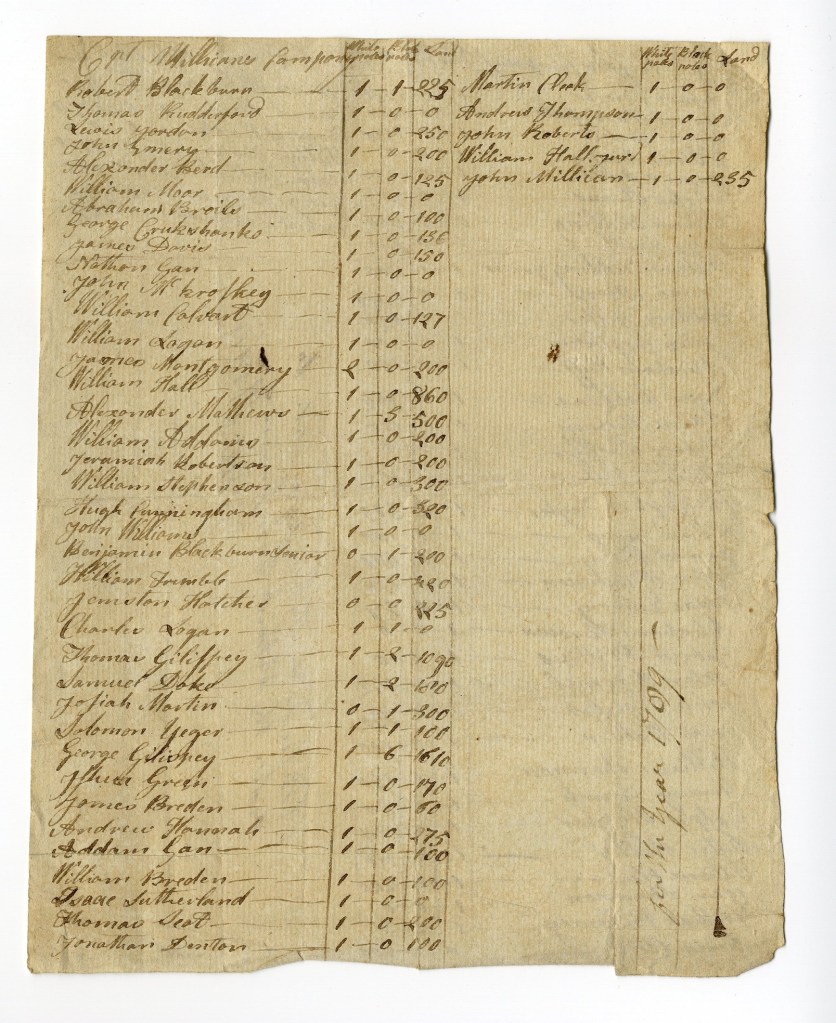 Cpt Williams Company White poles Black poles Land
Robert Blackburn — 1 — 1 — 225
Thomas Rudderford — 1 — 0 — 0
Lewis Jordon — 1 — 0 — 250
John Emery — 1 — 0 — 200
Alexonder Berd — 1 — 0 — 125
William Moor — 1 — 0 — 0
Abraham Broils — 1 — 0 — 100
George Crukshanks — 1 — 0 — 136
James Davis — 1 — 0 — 150
Nathan Gan — 1 — 0 — 0
John Mc kroskey — 1 — 0 — 0
William Calvart — 1 — 0 — 127
William Logan — 1 — 0 — 0
James Montgomery — 2 — 0 — 200
William Hall — 1 — 0 — 860
Alexonder Mathews — 1 — 3 — 500
William Addams — 1 — 0 — 200
Jeramiah Robertson — 1 — 0 — 200
William Stephenson — 1 — 0 — 300
Hugh Cunningham — 1 — 0 — 320
John Williams — 1 — 0 — 0
Benjamin Blackburn Senior 0 — 1 — 200
William Trimble — 1 — 0 — 220
Hatcher — 0 — 0 — 225
Charles Logan — 1 — 1 — 0
Thomas Gillispey — 1 — 2 — 1090
Samuel Doke — 1 — 2 —
Josiah Martin — 0 — 1 — 300
Solomon Yeger — 1 — 1 — 100
George Gilispey — 1 — 6 — 1610
Green — 1 — 0 — 170
James Breden — 1 — 0 — 60
Andrew Hannah — 1 — 0 — 275
Addam Gan — 1 — 0 — 100
William Breden — 1 — 0 — 100
Isaac Sutherland — 1 — 0 — 0
Thomas — 1 — 0 — 200
Jonathan Denton — 1 — 0 — 100
White poles Black poles Land
Martin Cleek — 1 — 0 — 0
Andrew Thompson — 1 — 0 — 0
John Roberts — 1 — 0 — 0
William Hall jur 1 — 0 — 0
John Millican — 1 — 0 — 235
for the year 1789 —